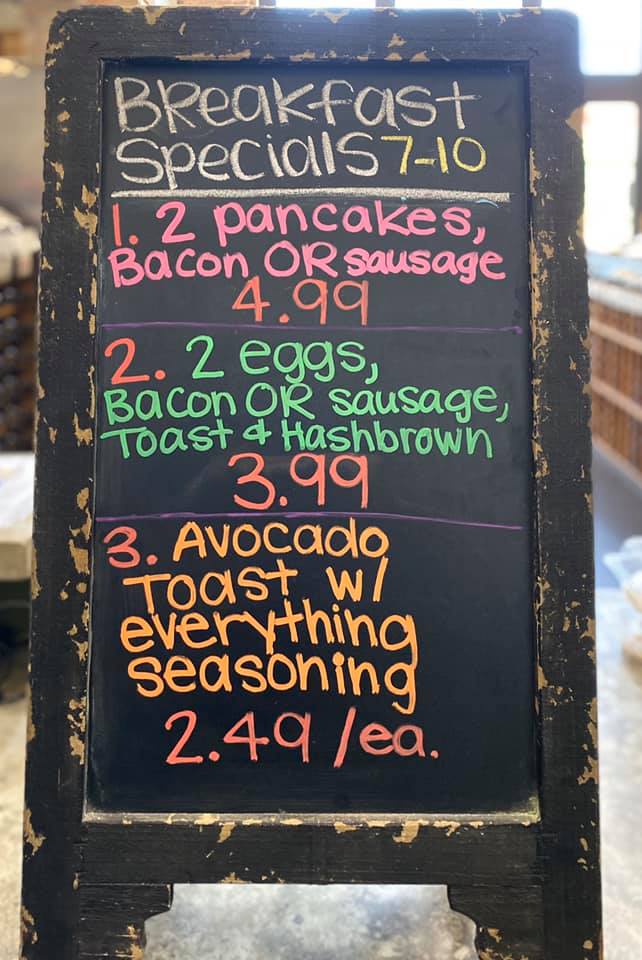 Breakfast
Specials 7-10
1. 2 pancakes,
Bacon OR sausage
4.99
2. 2 eggs,
Bacon OR sausage,
Toast & Hashbrown
3.99
3. Avocado
Toast w/
everything
seasoning
2.49 /ea.